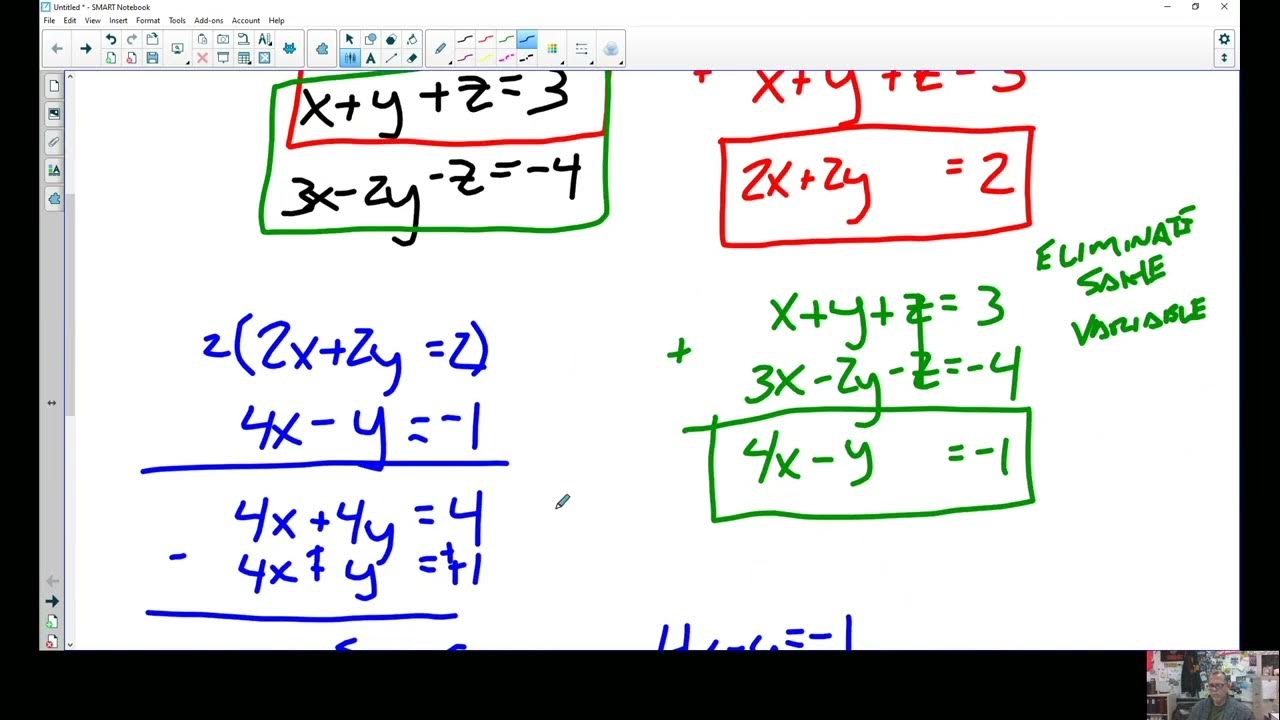 Untitled * - SMART Notebook
File Edit View Insert Format Tools Add-ons Account Help
x+y+z=3
3x-2y-z=-4
+ x+y+z=3
2x+2y =2
ELIMINATE
SAME
VARIABLE
x+y+z=3
+ 3x-2y-z=-4
4x-y =-1
2(2x+2y=2)
4x-y=-1
4x+4y=4
- 4x+y=+1
4x-y=-1